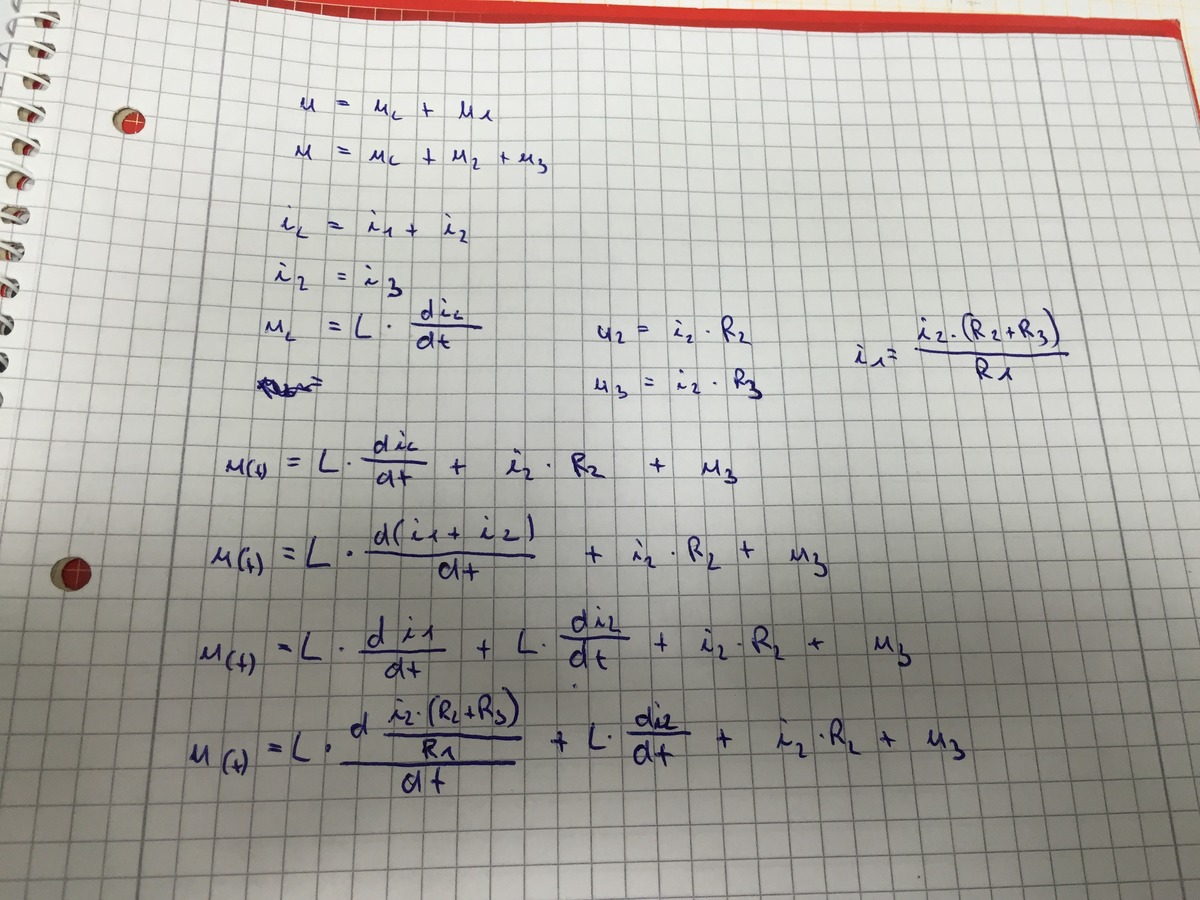 u = u_L + u_1
u = u_L + u_2 + u_3
i_L = i_1 + i_2
i_2 = i_3
u_L = L · di_L/dt    u_2 = i_2 · R_2    i_1 = i_2·(R_2+R_3)/R_1
u_3 = i_2 · R_3
u(t) = L · di_L/dt + i_2 · R_2 + u_3
u(t) = L · d(i_1 + i_2)/dt + i_2 · R_2 + u_3
u(t) = L · d i_1/dt + L · di_2/dt + i_2 · R_2 + u_3
u(t) = L · d (i_2·(R_2+R_3)/R_1)/dt + L · di_2/dt + i_2 · R_2 + u_3